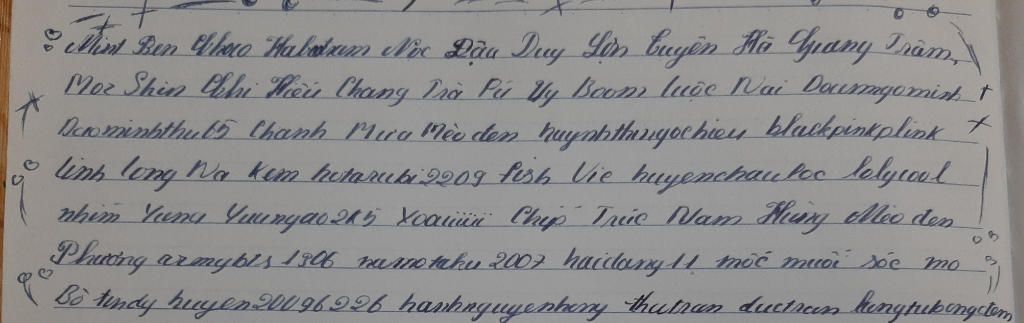 Mint Ben Nhoo Habaram Nấc Đậu Duy Lộn tuyên Hà Quang Trâm,
Moz Shin Chi Hiếu Chang Trà Pú Vy Boom luộc Nai Doumgominh
Daominhthu65 Chanh Mưa Mèo đen huynhthingochieu blackpinkplink
linh long Na Kem hotarubi2209 fish Vic huyenchauloc lolycool
nhím Yunu Yuunyao2k5 Xoaiiiii Chip Trúc Nam Hùng Mèo đen
Phương armybts 1306 namotaku 2007 haidang11 mốc muối sóc mo
Bò tindy huyen20096226 hanhnguyenhong thutran ductran